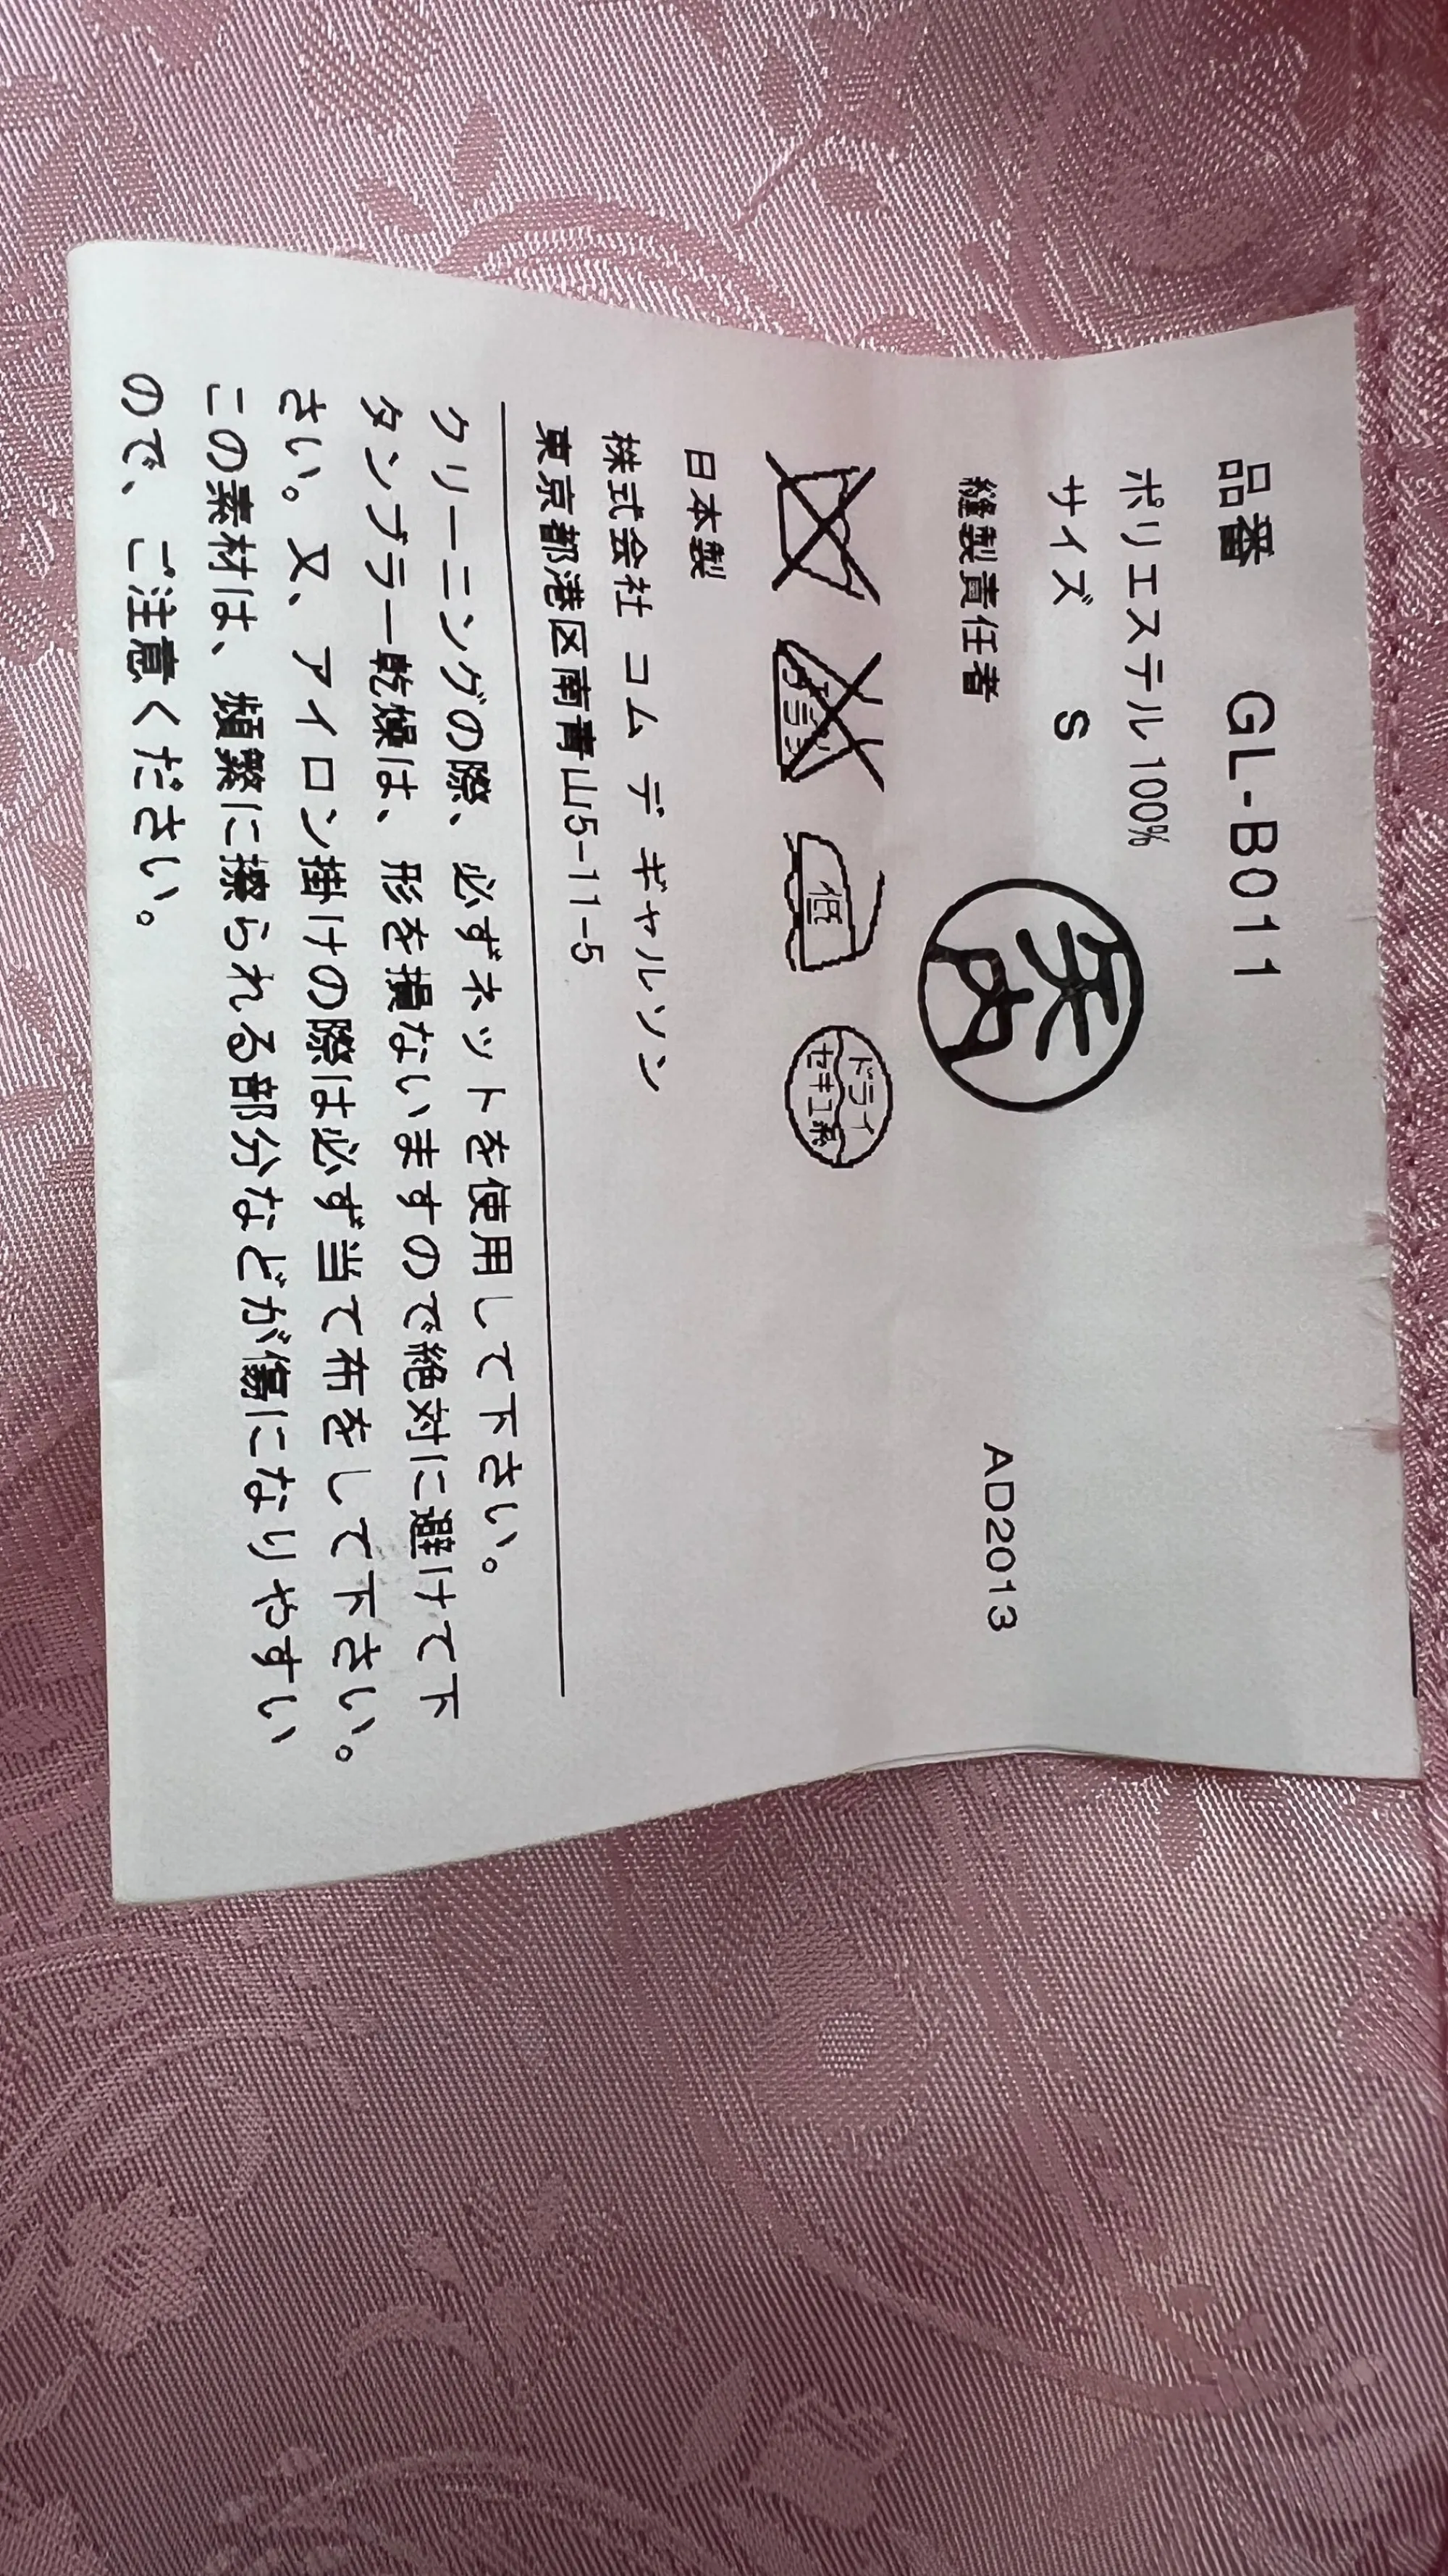 品番 GL-B011
ポリエステル 100%
サイズ S
縫製責任者 矢内
AD2013
低
ドライ
セキユ系
日本製
株式会社 コム デ ギャルソン
東京都港区南青山5-11-5
クリーニングの際、必ずネットを使用して下さい。
タンブラー乾燥は、形を損ないますので絶対に避けて下
さい。又、アイロン掛けの際は必ず当て布をして下さい。
この素材は、頻繁に擦られる部分などが傷になりやすい
ので、ご注意ください。